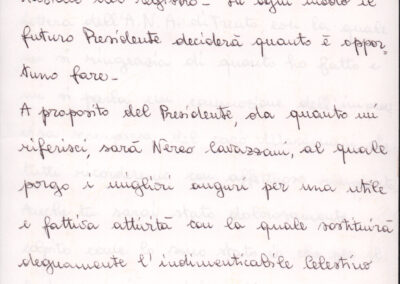 futuro Presidente deciderà quanto è oppor,
tuno fare -
A proposito del Presidente, da quanto mi
riferisci, sarà Nereo Cavazzani, al quale
porgo i migliori auguri per una utile
e fattiva attività con la quale sostituirà
degnamente l'indimenticabile Celestino